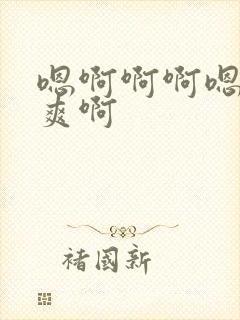 嗯啊啊啊嗯
爽啊
褚国新